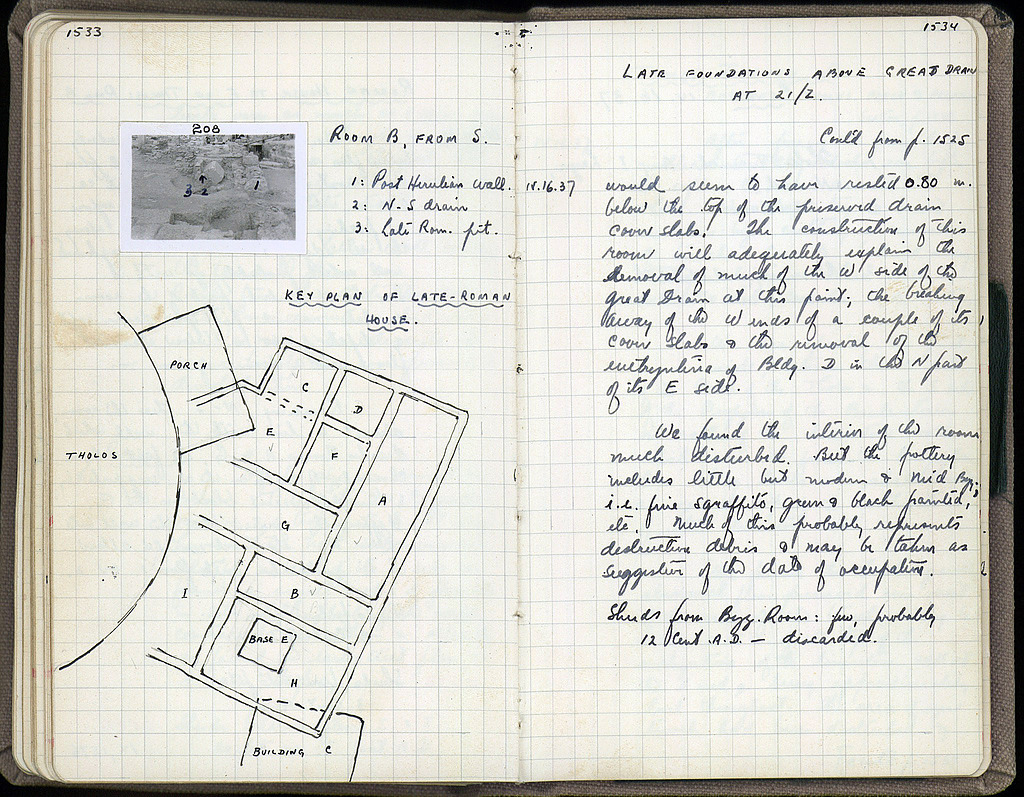 1533
208
3 2 1
ROOM B, FROM S.
1: Post Herulian wall.
2: N-S drain
3: Late Rom. pit.
KEY PLAN OF LATE-ROMAN
HOUSE.
PORCH
THOLOS
C
D
E
F
A
G
B
I
BASE E
H
BUILDING C
1534
LATE FOUNDATIONS ABOVE GREAT DRAIN
AT 21/Z.
Cont'd from p. 1525
16.37
would seem to have rested 0.80 m.
below the top of the preserved drain
cover slabs. The construction of this
room will adequately explain the
removal of much of the W side of the
Great Drain at this point; the breaking
away of the W ends of a couple of its
cover slabs & the removal of the
euthynteria of Bldg. D in the N part
of its E side.
We found the interior of the room
much disturbed. But the pottery
includes little but modern & Mid Byz;
i.e. fine sgraffito, green & black painted,
etc. Much of this probably represents
destruction debris & may be taken as
suggestive of the date of occupation.
Sherds from Byz. Room: few, probably
12 Cent. A.D. — discarded.